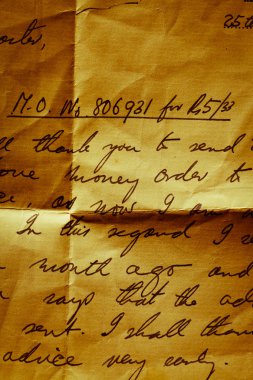 25.th
M.O. No. 806931 for Rs5/33
thank you to send
money order to
, as now I am
In this regard I
month ago and
says that the ad
sent. I shall than
advice very early.